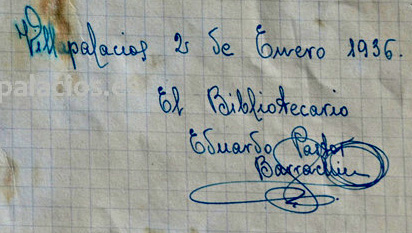 Villapalacios 2 de Enero 1936.
palacios.
El Bibliotecario
Eduardo Pastor
Barrachin